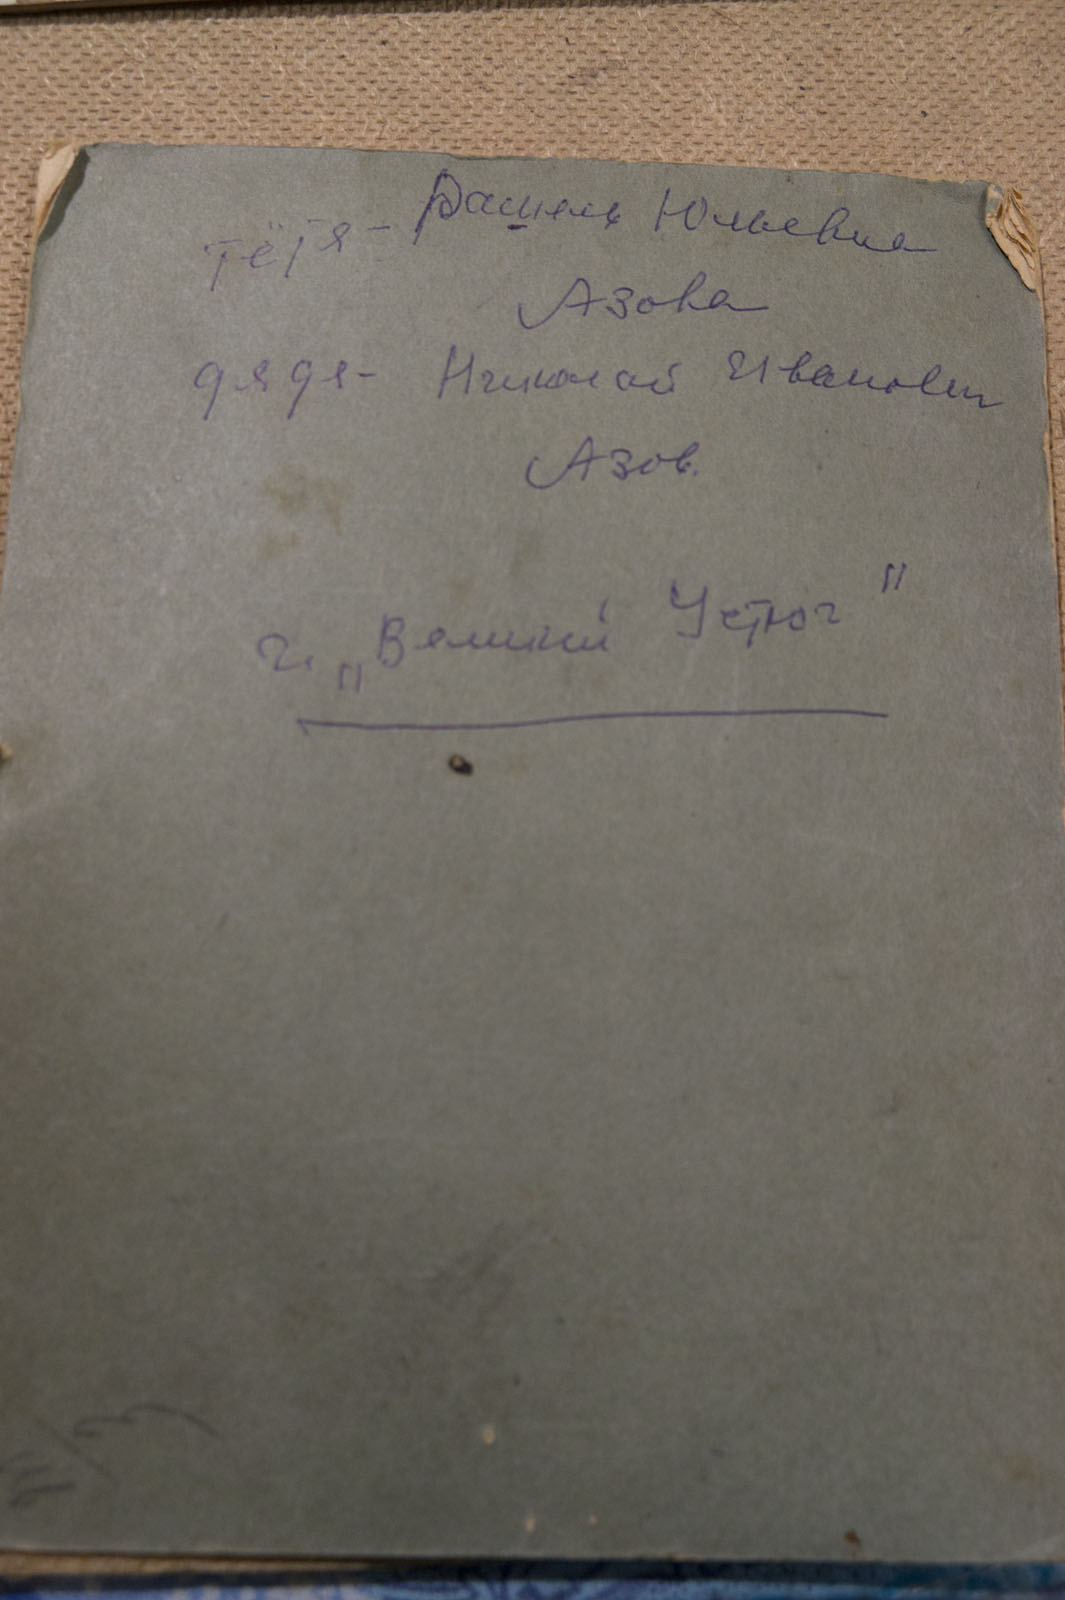 тётя - Рашель Юльевна
Азова
дядя - Николай Иванович
Азов.
г. „Великий Устюг"